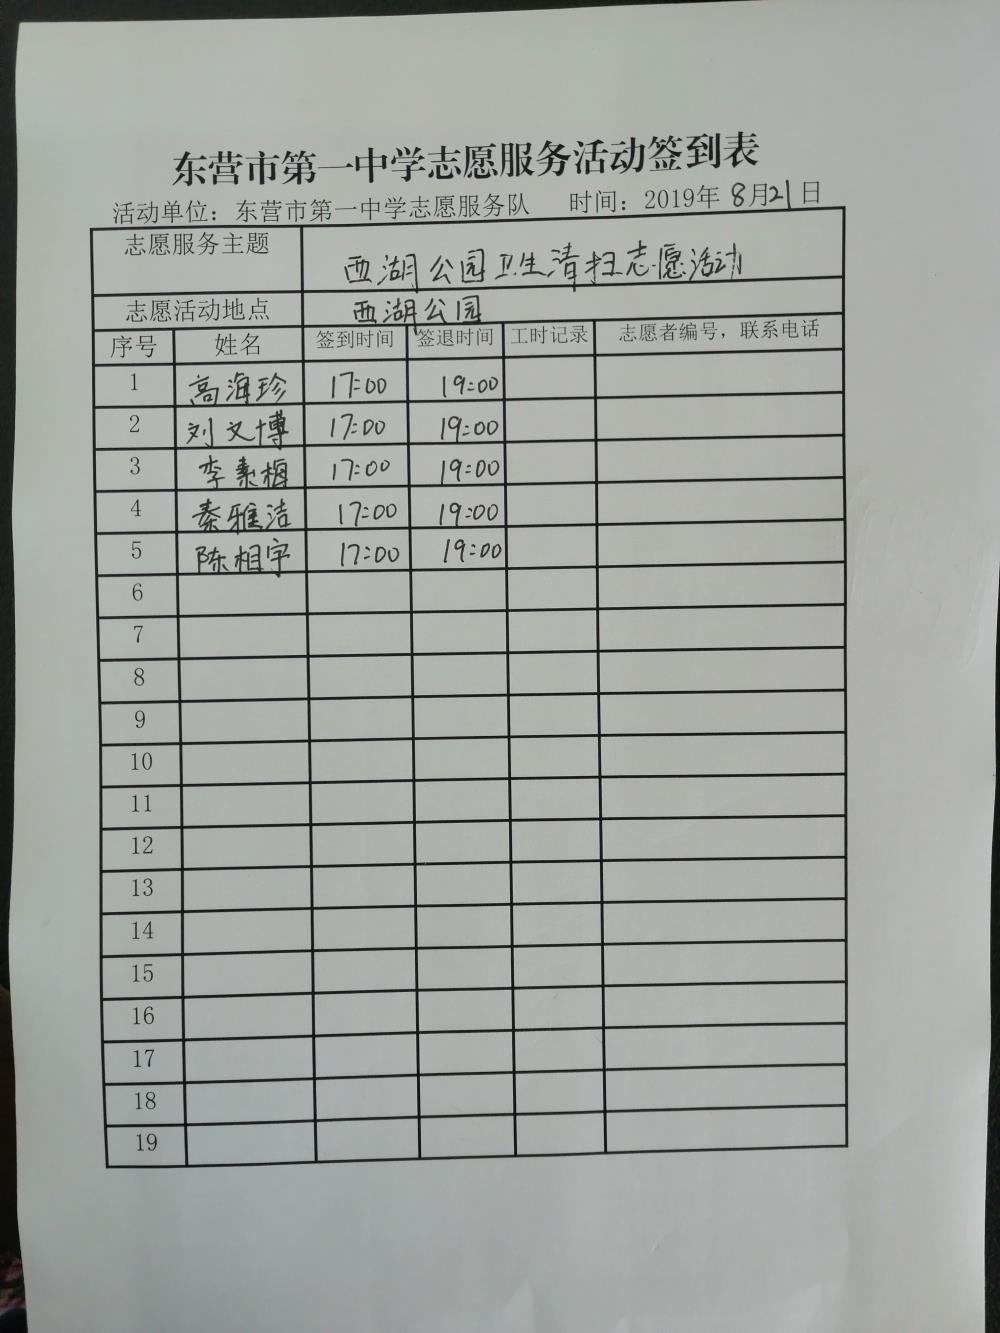 东营市第一中学志愿服务活动签到表
活动单位：东营市第一中学志愿服务队 时间：2019年 8月21日
志愿服务主题 西湖公园卫生清扫志愿活动
志愿活动地点 西湖公园
序号 姓名 签到时间 签退时间 工时记录 志愿者编号，联系电话
1 高海珍 17:00 19:00
2 刘文博 17:00 19:00
3 李素梅 17:00 19:00
4 秦雅洁 17:00 19:00
5 陈相宇 17:00 19:00
6
7
8
9
10
11
12
13
14
15
16
17
18
19